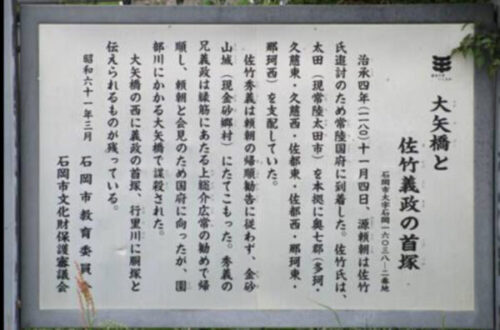 大矢橋と
佐竹義政の首塚
石岡市大字石岡一六〇三八―二番地
治承四年(一一八〇)十一月四日、源頼朝は佐竹
氏追討のため常陸国府に到着した。佐竹氏は、
太田(現常陸太田市)を本拠に奥七郡(多珂・
久慈東・久慈西・佐都東・佐都西・那珂東・
那珂西)を支配していた。
佐竹秀義は頼朝の帰順勧告に従わず、金砂
山城(現金砂郷村)にたてこもった。秀義の
兄義政は縁筋にあたる上総介広常の勧めで帰
順し、頼朝と会見のため国府に向ったが、園
部川にかかる大矢橋で謀殺された。
大矢橋の西に義政の首塚、行里川に胴塚と
伝えられるものが残っている。
昭和六十一年三月
石岡市教育委員会
石岡市文化財保護審議会